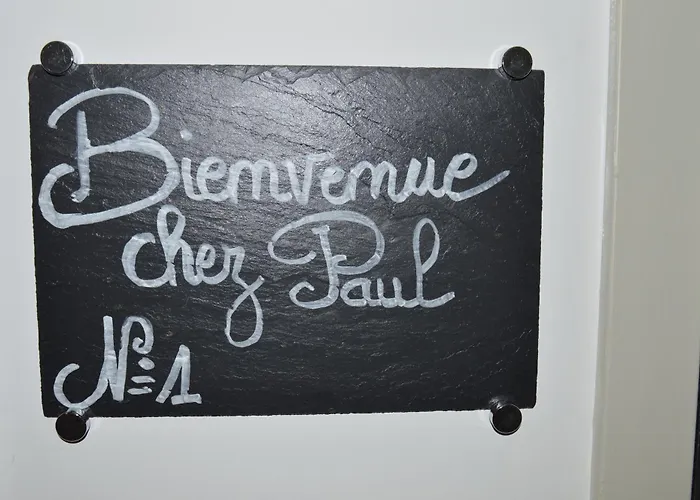 Bienvenue
chez Paul
N° 1